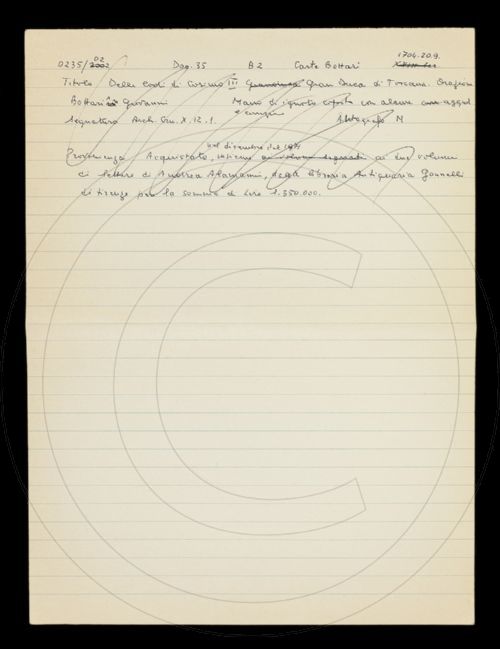 1704.20.9.
0235/2002 02 Dog. 35 B2 Carte Bottari
Titolo Delle lodi di Cosimo III Gran Duca di Toscana. Orazione
Bottari Giovanni Mano di ignoto copista con alcune aggiunte
e correzioni
Segnatura Arch. X. 12. 1. Autografo N
nel dicembre del 1971
Provenienza Acquistato, insieme ai due volumi
di lettere di Andrea Alamanni, dalla libreria Antiquaria Gonnelli
di Firenze per la somma di lire 1.350.000.